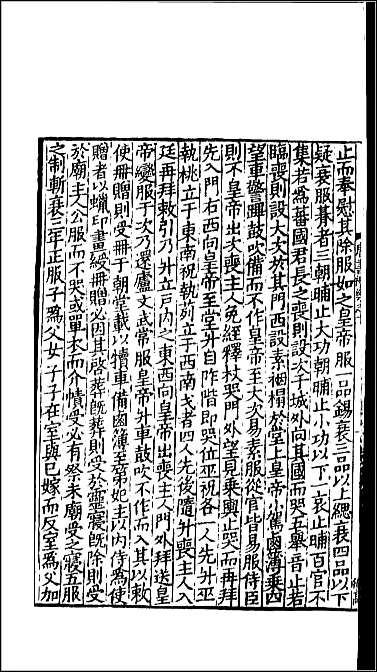 止而奉慰其除服如之皇帝服一品錫衰三品以上緦衰四品以下
疑衰服朞者三朝晡止大功朝晡止小功以下一哀止晡百官不
集若爲蕃國君長之喪則設次于城外向其國而哭五舉音止若
臨喪則設大次於其門西設素裀榻於堂上皇帝小駕鹵簿乗四
望車警蹕鼓吹備而不作皇帝至大次易素服從官皆易服侍臣
則不皇帝出次喪主人免絰釋杖哭門外望見乗輿止哭而再拜
先入門右西向皇帝至堂升自阼階即哭位巫祝各一人先升巫
執桃立于東南祝執茢立于西南戈者四人先後隨升喪主人入
廷再拜敕引乃升立戶內之東西向皇帝出喪主人門外拜送皇
帝變服于次乃還廬文武常服皇帝升車鼓吹不作而入其以敕
使冊贈則受冊于朝堂載以犢車備鹵簿至第妃主以內侍爲使
贈者以蠟印畫綬冊贈必因其啓葬既葬則受於靈寢既除則受
於廟主人公服而不哭或單衣而介幘受必有祭未廟受之寢五服
之制斬衰三年正服子爲父女子子在室與已嫁而反室爲父加